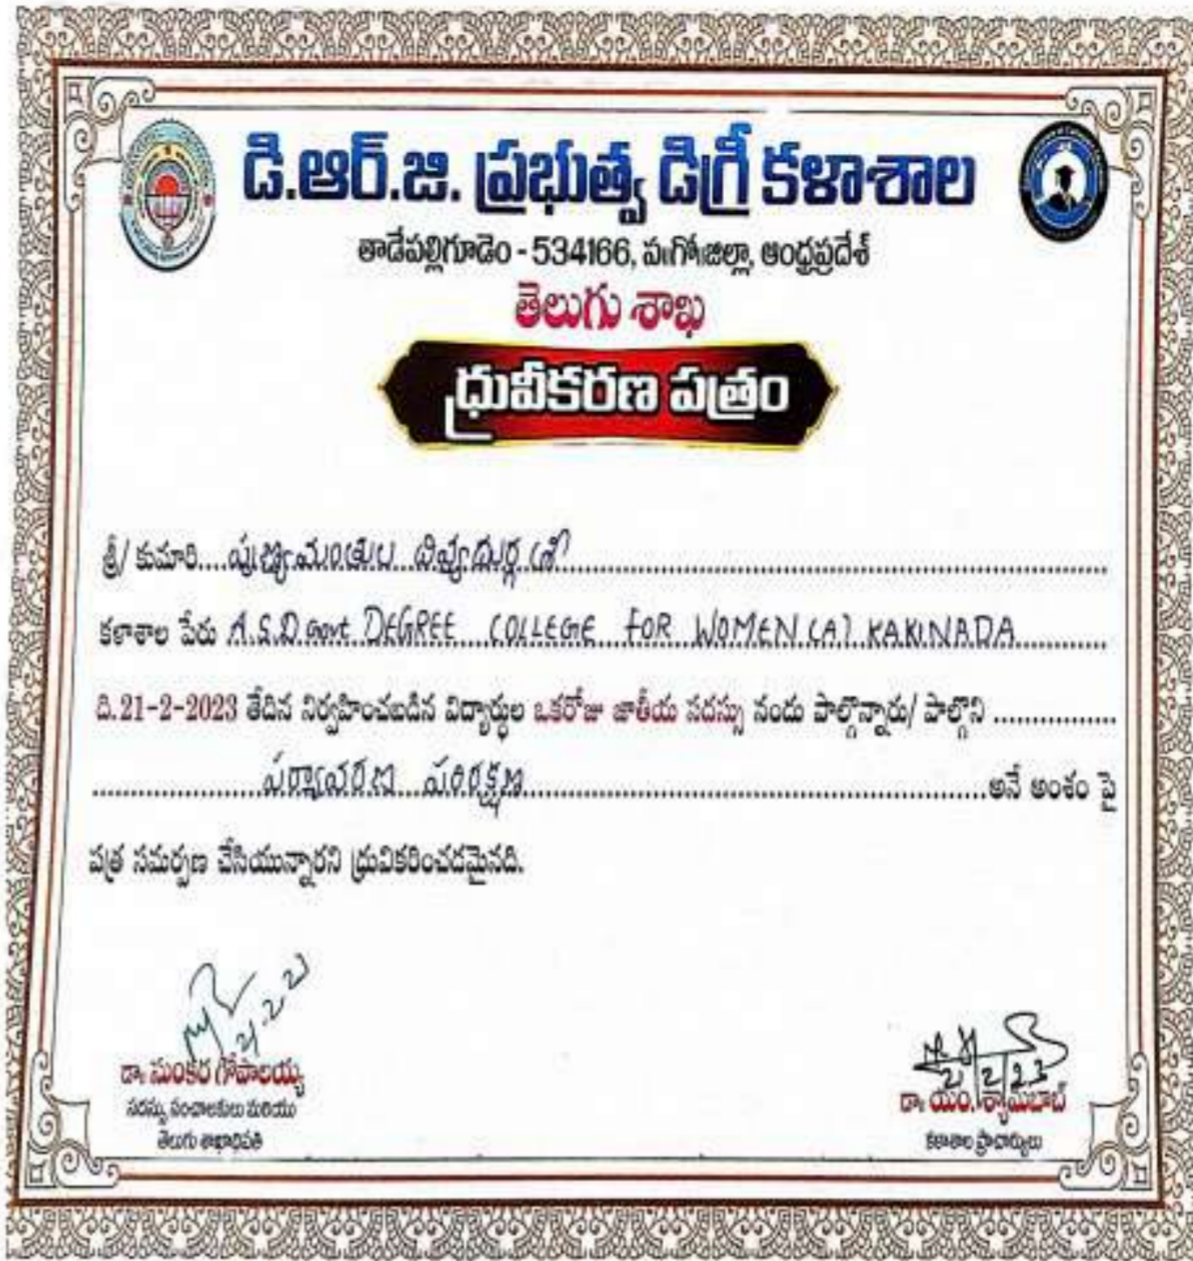 డి.ఆర్.జి. ప్రభుత్వ డిగ్రీ కళాశాల
తాడేపల్లిగూడెం - 534166, ప.గో.జిల్లా, ఆంధ్రప్రదేశ్
తెలుగు శాఖ
ధ్రువీకరణ పత్రం
శ్రీ/ కుమారి.... పుణ్యమంతుల దివ్యదుర్గ శ్రీ
కళాశాల పేరు A.S.D. Govt DEGREE COLLEGE FOR WOMEN (A) KAKINADA
ది.21-2-2023 తేదిన నిర్వహించబడిన విద్యార్థుల ఒకరోజు జాతీయ సదస్సు నందు పాల్గొన్నారు/ పాల్గొని
పర్యావరణ పరిరక్షణ అనే అంశం పై
పత్ర సమర్పణ చేసియున్నారని ధ్రువికరించడమైనది.
డా. సుంకర గోపాలయ్య
సదస్సు సంచాలకులు మరియు
తెలుగు శాఖాధిపతి
21/2/23
డా. యం. శ్యామ్‌బాబ్
కళాశాల ప్రాచార్యులు